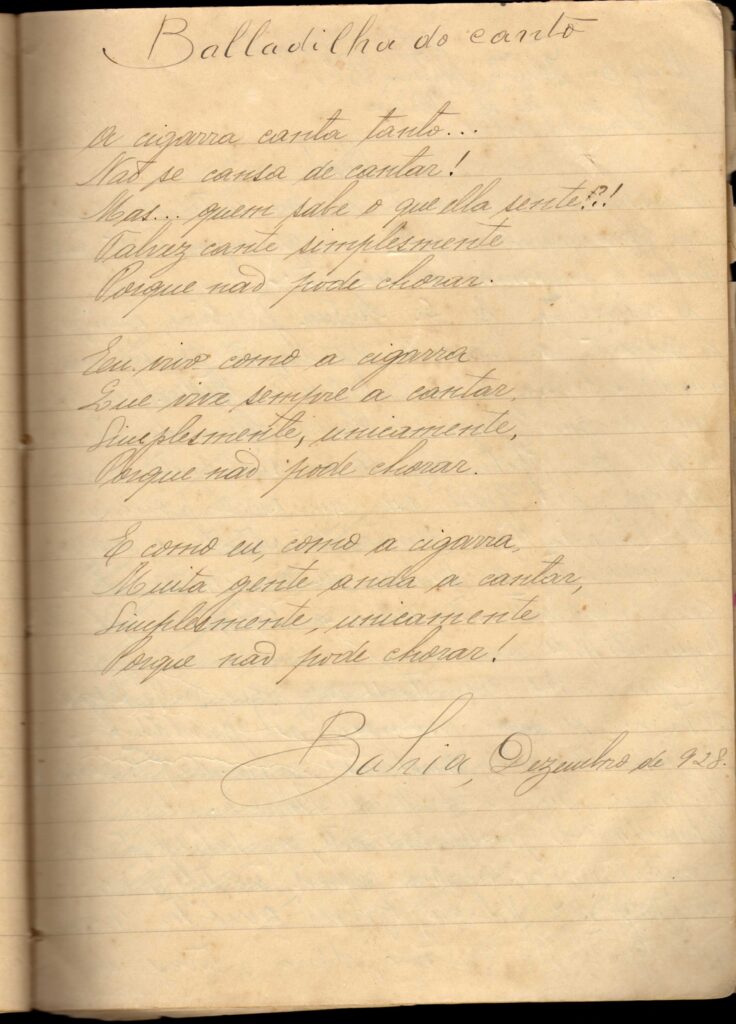 Balladilha do canto
A cigarra canta tanto...
Não se cansa de cantar!
Mas... quem sabe o que ella sente?!
Talvez cante simplesmente
Porque não pode chorar.
Eu vivo como a cigarra
Que vive sempre a cantar,
Simplesmente, unicamente,
Porque não pode chorar.
E como eu, como a cigarra,
Muita gente anda a cantar,
Simplesmente, unicamente
Porque não pode chorar!
Bahia, Dezembro de 928.